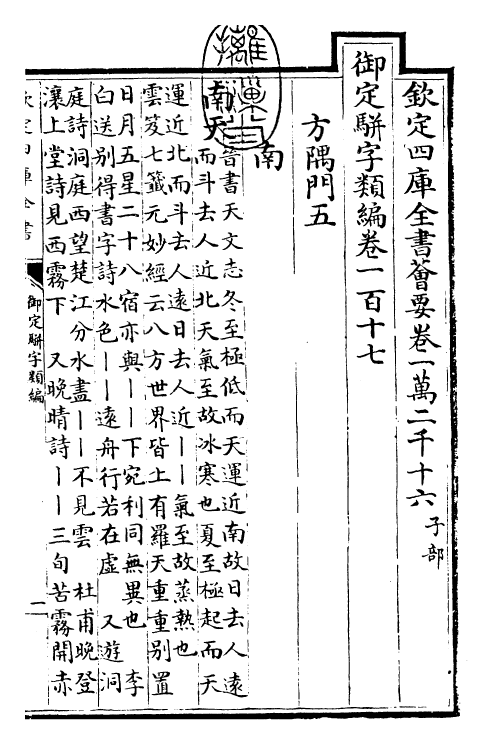 欽定四庫全書薈要卷一萬二千十六 子部
御定駢字類編卷一百十七
方隅門五
南
南天 晉書天文志冬至極低而天運近南故日去人遠
而斗去人近北天氣至故冰寒也夏至極起而天
運近北而斗去人遠日去人近丨丨氣至故蒸熱也
雲笈七籤元妙經云八方世界皆上有羅天重重別置
日月五星二十八宿亦與丨丨下宛利同無異也 李
白送别得書字詩水色丨丨遠舟行若在虛 又遊洞
庭詩洞庭西望楚江分水盡丨丨不見雲 杜甫晚登
瀼上堂詩見西霧下 又晚晴詩丨丨三旬苦霧開赤
欽定四庫全書
御定駢字類編